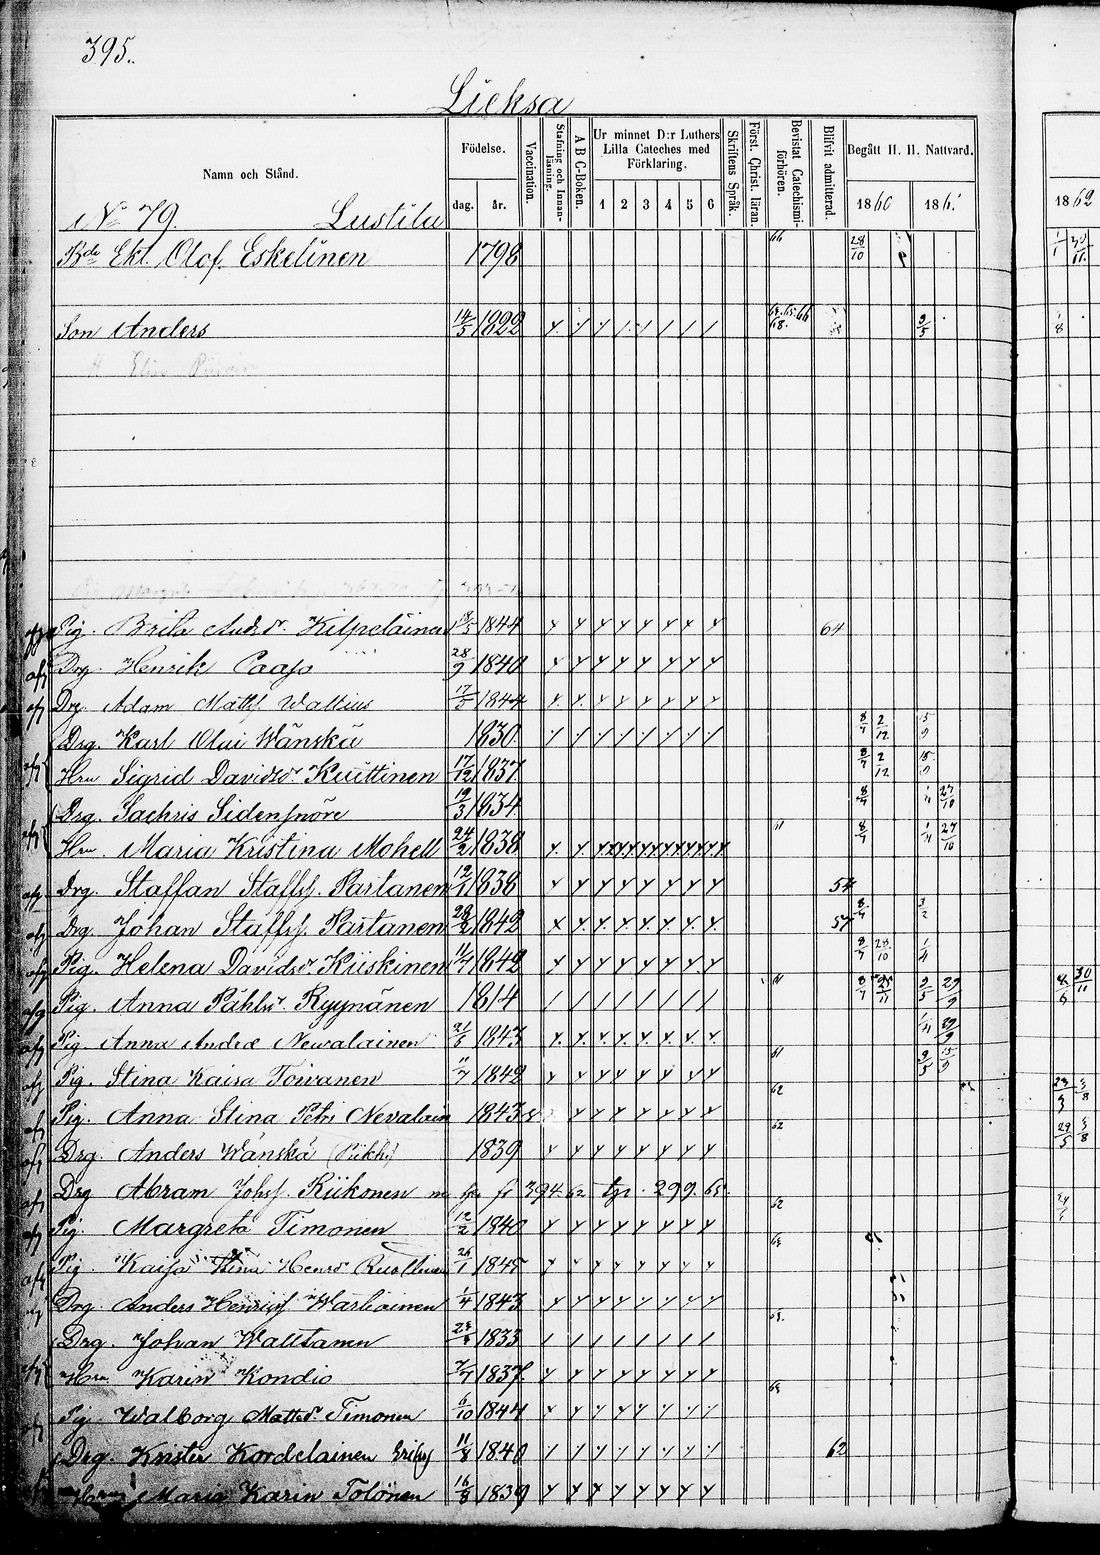 395.
Lieksa
Namn och Stånd.
Födelse.
dag.
år.
Vaccination.
Stafning och Innanläsning.
A B C-Boken.
Ur minnet D:r Luthers Lilla Cateches med Förklaring.
1 2 3 4 5 6
Skriftens Språk.
Först. Christ. läran.
Bevistat Catechismiförhören.
Blifvit admitterad.
Begått H. H. Nattvard.
1860 1861 1862
No 79. Lustila
Bde Ekt. Olof Eskelinen 1798 66 28/10
Son Anders 14/5 1822 64.65.66 68. 9/5
Pig. Brita Andrsdr. Kilpeläinen 1844 64
Drg Henrik Paaso 28/9 1840
Drg. Adam Mattss. Wallius 17/5 1844
Drg. Karl Olai Wänskä 1830 8/7 2/12
Hru Sigrid Davidsdr Kuittinen 17/12 1837 8/7 2/12
Drg. Sachris Sidensnöre 19/3 1834 8/7 27/10
Hru. Maria Kristina Mohell 24/2 1838 61 8/7 1/4 27/10
Drg. Staffan Staffss. Partanen 12/1 1838 54
Drg Johan Staffss. Partanen 1842 57 8/7 3/2
Pig. Helena Davidsdr. Kiiskinen 11/7 1842 8/7 28/10 1/4
Pig. Anna Påhlsdr. Ryynänen 1814 61 8/7 25/11 9/5 29/9 8/6 30/11
Pig. Anna Andrae Newalainen 21/6 1843 29/9
Pig. Stina Kaisa Toivanen 11/7 1842 61 9/5 15/9
Pig. Anna Stina Petri Nevalain 1843 62 23/3 3/8
Drg. Anders Wänskä 1839 62 29/5 3/8
Drg Abram Johss. Riikonen fr 394 62 299. 65.
Pig. Margreta Timonen 12/2 1840 62
Pig. Kaisa Stina Henrdr 26/1 1845 64
Drg. Anders Henrikss. 1/4 1843
Drg. Johan Walttanen 1833
Hru Karin Kondio 7/7 1837
Pig. Walborg Mattsdr. Timonen 6/10 1844 64
Drg. Krister Kordelainen 11/8 1840 62
Maria Karin Tolönen 16/8 1839